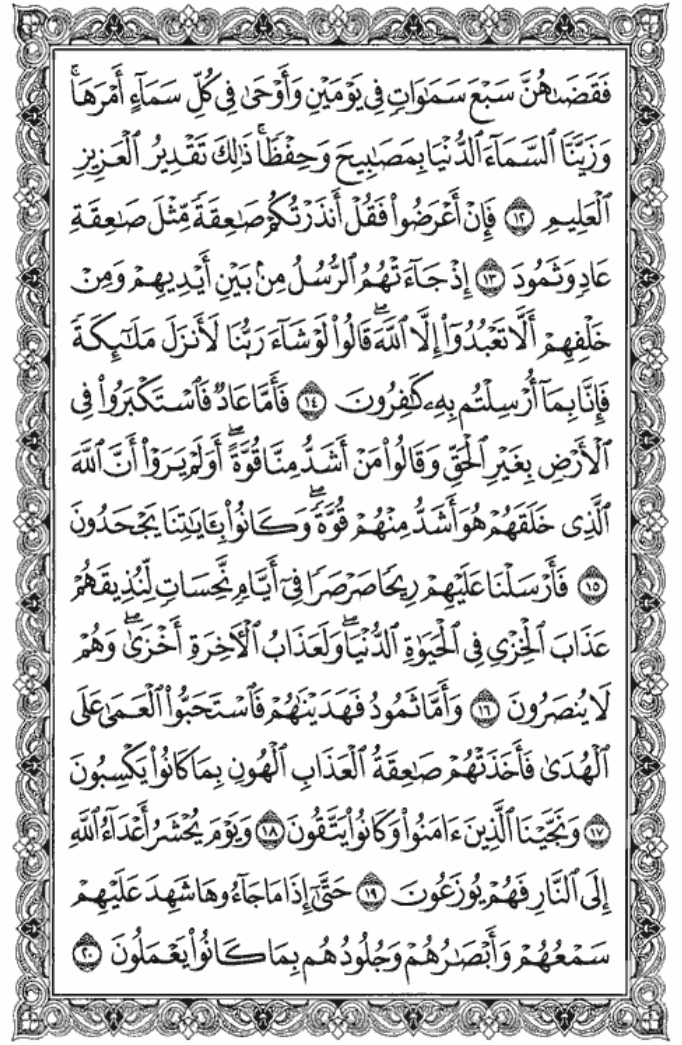 فَقَضَىٰهُنَّ سَبْعَ سَمَٰوَاتٍ فِي يَوْمَيْنِ وَأَوْحَىٰ فِي كُلِّ سَمَآءٍ أَمْرَهَاۚ
وَزَيَّنَّا ٱلسَّمَآءَ ٱلدُّنْيَا بِمَصَٰبِيحَ وَحِفْظًاۚ ذَٰلِكَ تَقْدِيرُ ٱلْعَزِيزِ
ٱلْعَلِيمِ ١٢ فَإِنْ أَعْرَضُوا۟ فَقُلْ أَنذَرْتُكُمْ صَٰعِقَةً مِّثْلَ صَٰعِقَةِ
عَادٍ وَثَمُودَ ١٣ إِذْ جَآءَتْهُمُ ٱلرُّسُلُ مِنۢ بَيْنِ أَيْدِيهِمْ وَمِنْ
خَلْفِهِمْ أَلَّا تَعْبُدُوٓا۟ إِلَّا ٱللَّهَۖ قَالُوا۟ لَوْ شَآءَ رَبُّنَا لَأَنزَلَ مَلَٰٓئِكَةً
فَإِنَّا بِمَآ أُرْسِلْتُم بِهِۦ كَٰفِرُونَ ١٤ فَأَمَّا عَادٌ فَٱسْتَكْبَرُوا۟ فِي
ٱلْأَرْضِ بِغَيْرِ ٱلْحَقِّ وَقَالُوا۟ مَنْ أَشَدُّ مِنَّا قُوَّةًۖ أَوَلَمْ يَرَوْا۟ أَنَّ ٱللَّهَ
ٱلَّذِي خَلَقَهُمْ هُوَ أَشَدُّ مِنْهُمْ قُوَّةًۖ وَكَانُوا۟ بِـَٔايَٰتِنَا يَجْحَدُونَ
١٥ فَأَرْسَلْنَا عَلَيْهِمْ رِيحًا صَرْصَرًا فِيٓ أَيَّامٍ نَّحِسَاتٍ لِّنُذِيقَهُمْ
عَذَابَ ٱلْخِزْيِ فِي ٱلْحَيَوٰةِ ٱلدُّنْيَاۖ وَلَعَذَابُ ٱلْءَاخِرَةِ أَخْزَىٰۖ وَهُمْ
لَا يُنصَرُونَ ١٦ وَأَمَّا ثَمُودُ فَهَدَيْنَٰهُمْ فَٱسْتَحَبُّوا۟ ٱلْعَمَىٰ عَلَى
ٱلْهُدَىٰ فَأَخَذَتْهُمْ صَٰعِقَةُ ٱلْعَذَابِ ٱلْهُونِ بِمَا كَانُوا۟ يَكْسِبُونَ
١٧ وَنَجَّيْنَا ٱلَّذِينَ ءَامَنُوا۟ وَكَانُوا۟ يَتَّقُونَ ١٨ وَيَوْمَ يُحْشَرُ أَعْدَآءُ ٱللَّهِ
إِلَى ٱلنَّارِ فَهُمْ يُوزَعُونَ ١٩ حَتَّىٰٓ إِذَا مَا جَآءُوهَا شَهِدَ عَلَيْهِمْ
سَمْعُهُمْ وَأَبْصَٰرُهُمْ وَجُلُودُهُم بِمَا كَانُوا۟ يَعْمَلُونَ ٢٠